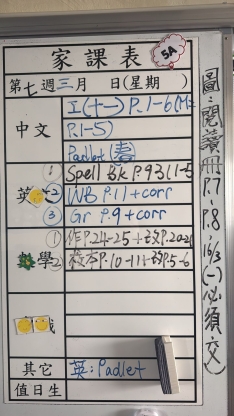 家課表
5A
第七週 三月 日(星期 )
中文
I(十一) P.1-6(M:
P.1-5)
Padlet(春)
英
① Spell Bk P.93(1-5
② WB P.11 + corr
③ Gr P.9 + corr
數學
① P.24-25 +
② P.10-11 + P.5-6
其它
英:Padlet
值日生
圖:閱讀冊 P.7-P.8 16/3(一)必須交)